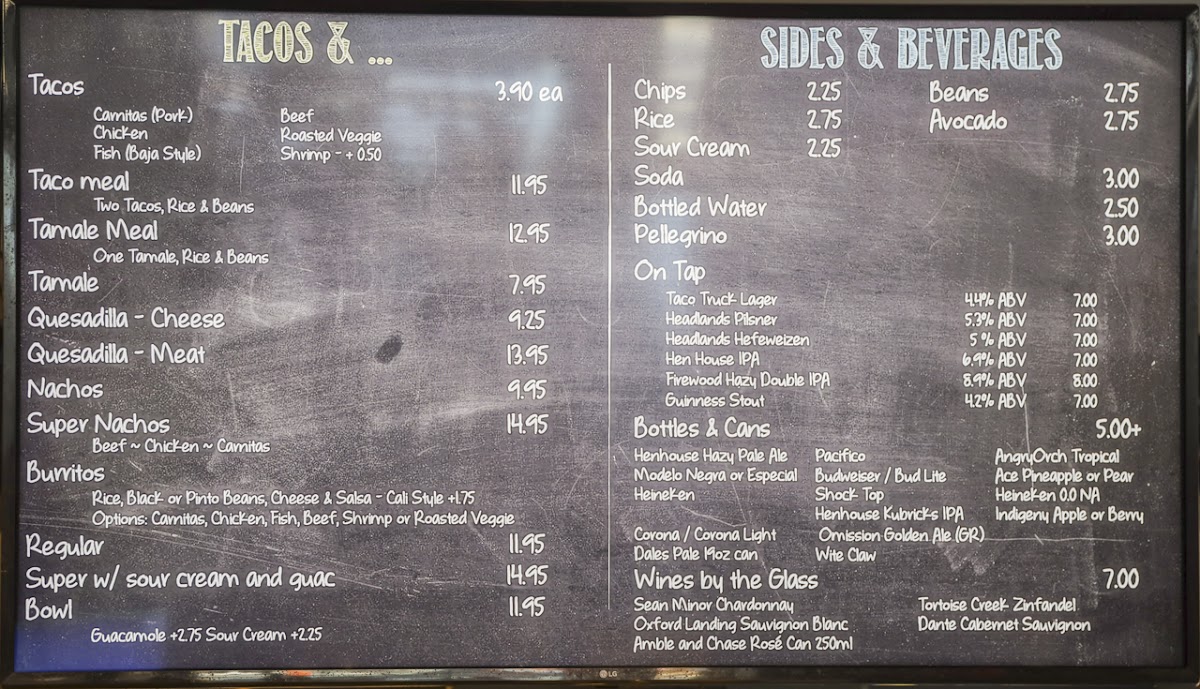 TACOS & ...
Tacos 3.90 ea
Carnitas (Pork) Beef
Chicken Roasted Veggie
Fish (Baja Style) Shrimp - + 0.50
Taco meal 11.95
Two Tacos, Rice & Beans
Tamale Meal 12.95
One Tamale, Rice & Beans
Tamale 7.95
Quesadilla - Cheese 9.25
Quesadilla - Meat 13.95
Nachos 9.95
Super Nachos 14.95
Beef ~ Chicken ~ Carnitas
Burritos
Rice, Black or Pinto Beans, Cheese & Salsa - Cali Style +1.75
Options: Carnitas, Chicken, Fish, Beef, Shrimp or Roasted Veggie
Regular 11.95
Super w/ sour cream and guac 14.95
Bowl 11.95
Guacamole +2.75 Sour Cream +2.25
SIDES & BEVERAGES
Chips 2.25 Beans 2.75
Rice 2.75 Avocado 2.75
Sour Cream 2.25
Soda 3.00
Bottled Water 2.50
Pellegrino 3.00
On Tap
Taco Truck Lager 4.4% ABV 7.00
Headlands Pilsner 5.3% ABV 7.00
Headlands Hefeweizen 5 % ABV 7.00
Hen House IPA 6.9% ABV 7.00
Firewood Hazy Double IPA 8.9% ABV 8.00
Guinness Stout 4.2% ABV 7.00
Bottles & Cans 5.00+
Henhouse Hazy Pale Ale Pacifico AngryOrch Tropical
Modelo Negra or Especial Budweiser / Bud Lite Ace Pineapple or Pear
Heineken Shock Top Heineken 0.0 NA
Henhouse Kubricks IPA Indigeny Apple or Berry
Corona / Corona Light Omission Golden Ale (GR)
Dales Pale 19oz can Wite Claw
Wines by the Glass 7.00
Sean Minor Chardonnay Tortoise Creek Zinfandel
Oxford Landing Sauvignon Blanc Dante Cabernet Sauvignon
Amble and Chase Rosé Can 250ml
LG